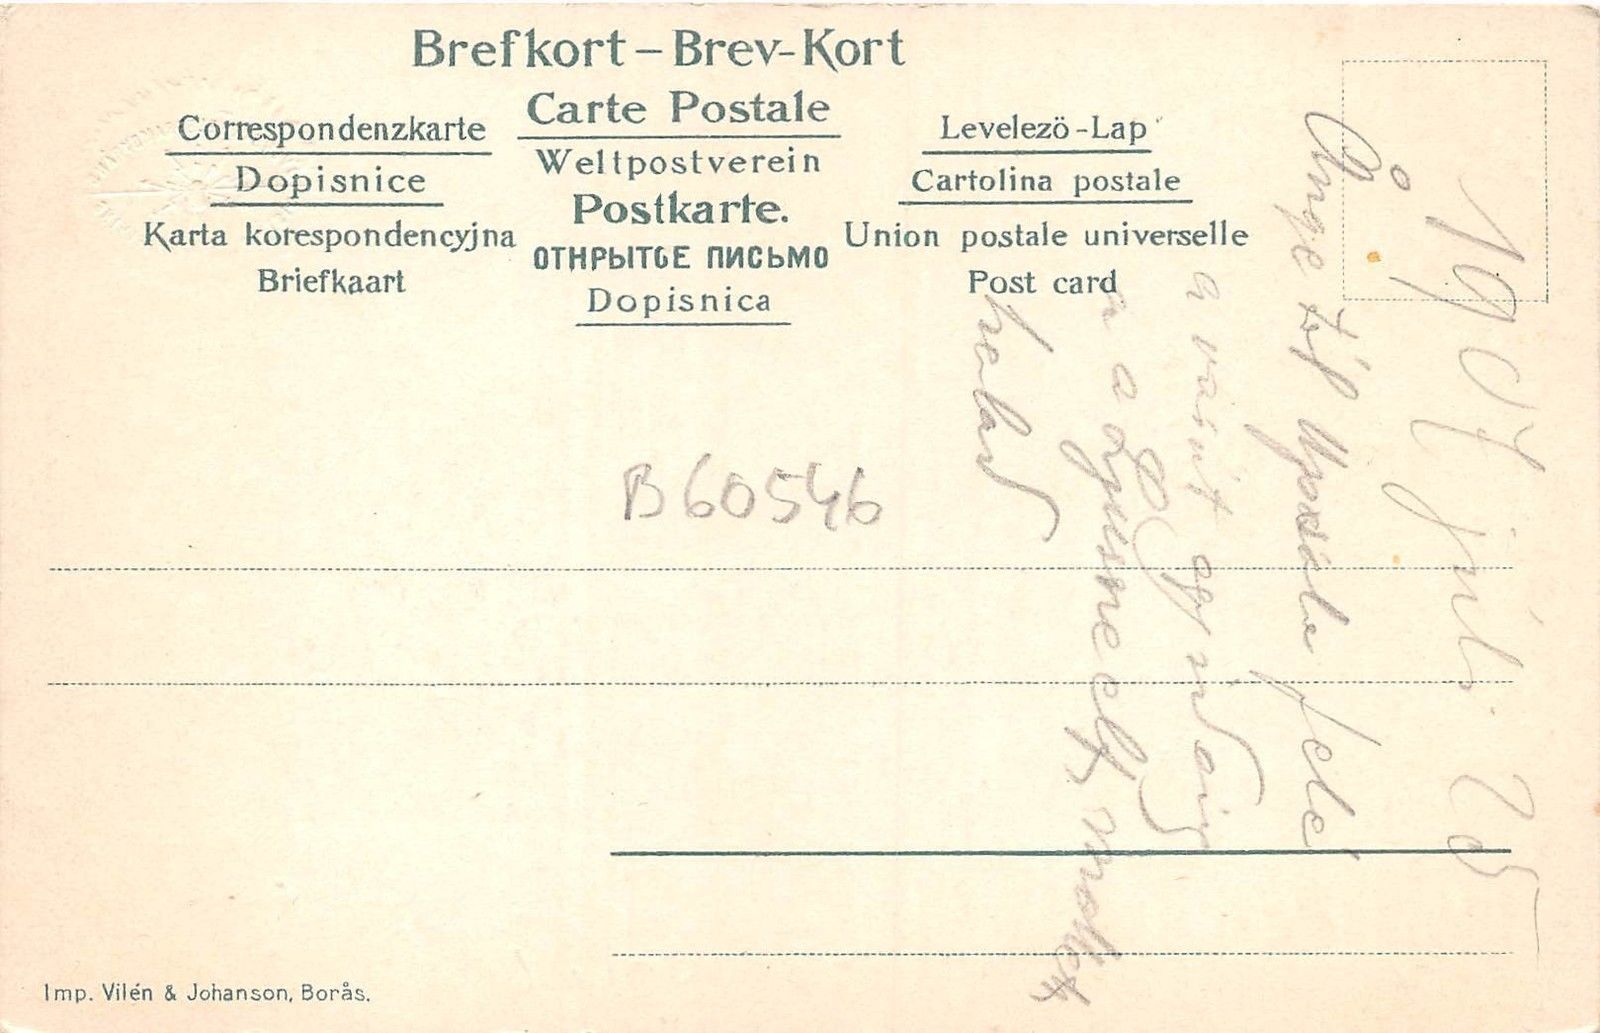 Brefkort – Brev-Kort
Carte Postale
Weltpostverein
Postkarte.
ОТКРЫТОЕ ПИСЬМО
Dopisnica
Correspondenzkarte
Dopisnice
Karta korespondencyjna
Briefkaart
Levelezö-Lap
Cartolina postale
Union postale universelle
Post card
B60546
1907 juli 25
Ånge től Upsala felé
a vasút egy
a a
halad
Imp. Vilén & Johanson, Borås.